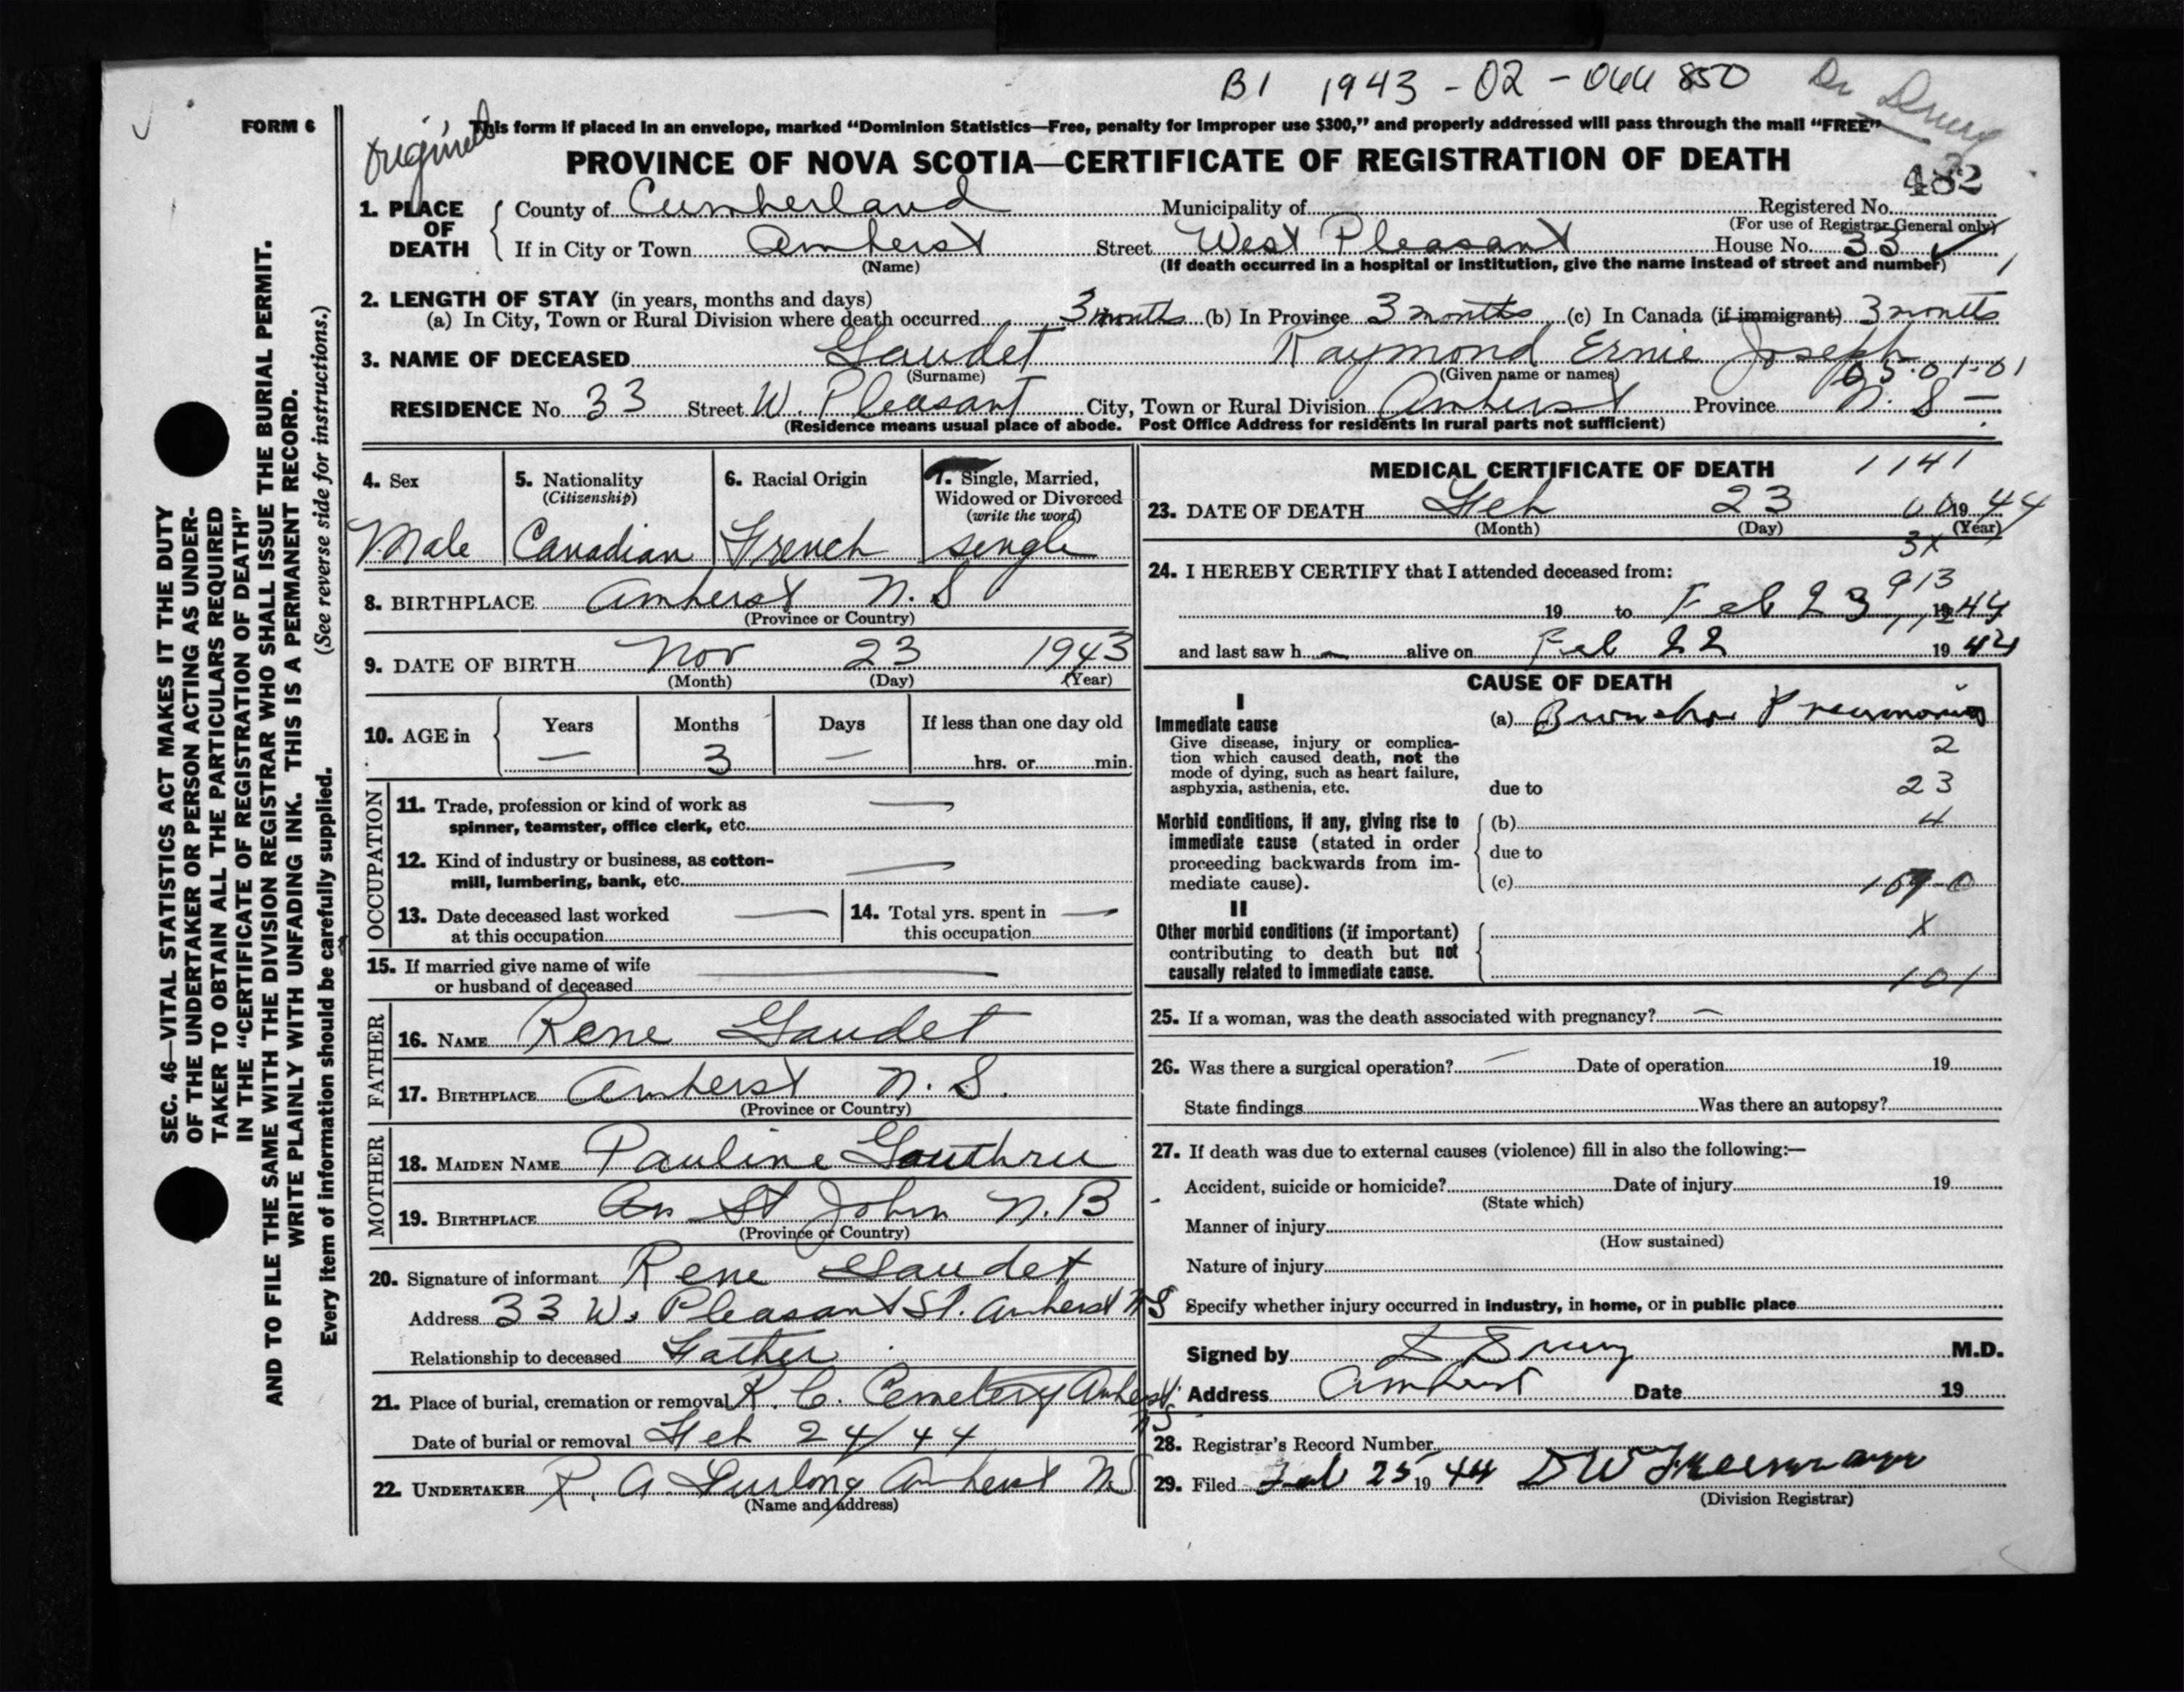 B1 1943 - 02 - 066 850 Dr Drury
FORM 6
Original
This form if placed in an envelope, marked “Dominion Statistics—Free, penalty for improper use $300,” and properly addressed will pass through the mail “FREE”
PROVINCE OF NOVA SCOTIA—CERTIFICATE OF REGISTRATION OF DEATH
482
1. PLACE OF DEATH
County of Cumberland Municipality of Registered No.
(For use of Registrar General only)
If in City or Town Amherst Street West Pleasant House No. 33
(Name) (If death occurred in a hospital or institution, give the name instead of street and number)
2. LENGTH OF STAY (in years, months and days)
(a) In City, Town or Rural Division where death occurred 3 months (b) In Province 3 months (c) In Canada (if immigrant) 3 months
3. NAME OF DECEASED Gaudet Raymond Ernie Joseph
(Surname) (Given name or names)
05.01.01
RESIDENCE No. 33 Street W. Pleasant City, Town or Rural Division Amherst Province N. S —
(Residence means usual place of abode. Post Office Address for residents in rural parts not sufficient)
4. Sex
Male
5. Nationality
(Citizenship)
Canadian
6. Racial Origin
French
7. Single, Married,
Widowed or Divorced
(write the word)
single
8. BIRTHPLACE Amherst N. S
(Province or Country)
9. DATE OF BIRTH Nov 23 1943
(Month) (Day) (Year)
10. AGE in Years Months Days If less than one day old
— 3 — hrs. or min.
OCCUPATION
11. Trade, profession or kind of work as —
spinner, teamster, office clerk, etc.
12. Kind of industry or business, as cotton- —
mill, lumbering, bank, etc.
13. Date deceased last worked —
at this occupation
14. Total yrs. spent in —
this occupation
15. If married give name of wife —
or husband of deceased
FATHER
16. NAME Rene Gaudet
17. BIRTHPLACE Amherst N. S.
(Province or Country)
MOTHER
18. MAIDEN NAME Pauline Gouthru
19. BIRTHPLACE St John N. B
(Province or Country)
20. Signature of informant Rene Gaudet
Address 33 W. Pleasant St. Amherst NS
Relationship to deceased Father
21. Place of burial, cremation or removal R. C. Cemetery Amherst NS
Date of burial or removal Feb 24/44
22. UNDERTAKER R. A. Furlong Amherst NS
(Name and address)
MEDICAL CERTIFICATE OF DEATH 1141
23. DATE OF DEATH Feb 23 1944
(Month) (Day) (Year)
3X
24. I HEREBY CERTIFY that I attended deceased from:
913
19 to Feb 23 1944
and last saw h alive on Feb 22 1944
CAUSE OF DEATH
I
Immediate cause (a) Broncho Pneumonia
Give disease, injury or complica-
tion which caused death, not the
mode of dying, such as heart failure,
asphyxia, asthenia, etc. due to
2
23
4
Morbid conditions, if any, giving rise to
immediate cause (stated in order
proceeding backwards from im-
mediate cause).
(b)
due to
(c) 107-0
II
Other morbid conditions (if important)
contributing to death but not
causally related to immediate cause.
X
101
25. If a woman, was the death associated with pregnancy? —
26. Was there a surgical operation? — Date of operation 19
State findings Was there an autopsy?
27. If death was due to external causes (violence) fill in also the following:—
Accident, suicide or homicide? Date of injury 19
(State which)
Manner of injury
(How sustained)
Nature of injury
Specify whether injury occurred in industry, in home, or in public place
Signed by D Drury M.D.
Address Amherst Date 19
28. Registrar's Record Number
29. Filed Feb 25 1944
(Division Registrar)
SEC. 46—VITAL STATISTICS ACT MAKES IT THE DUTY
OF THE UNDERTAKER OR PERSON ACTING AS UNDER-
TAKER TO OBTAIN ALL THE PARTICULARS REQUIRED
IN THE “CERTIFICATE OF REGISTRATION OF DEATH”
AND TO FILE THE SAME WITH THE DIVISION REGISTRAR WHO SHALL ISSUE THE BURIAL PERMIT.
WRITE PLAINLY WITH UNFADING INK. THIS IS A PERMANENT RECORD.
Every item of information should be carefully supplied. (See reverse side for instructions.)